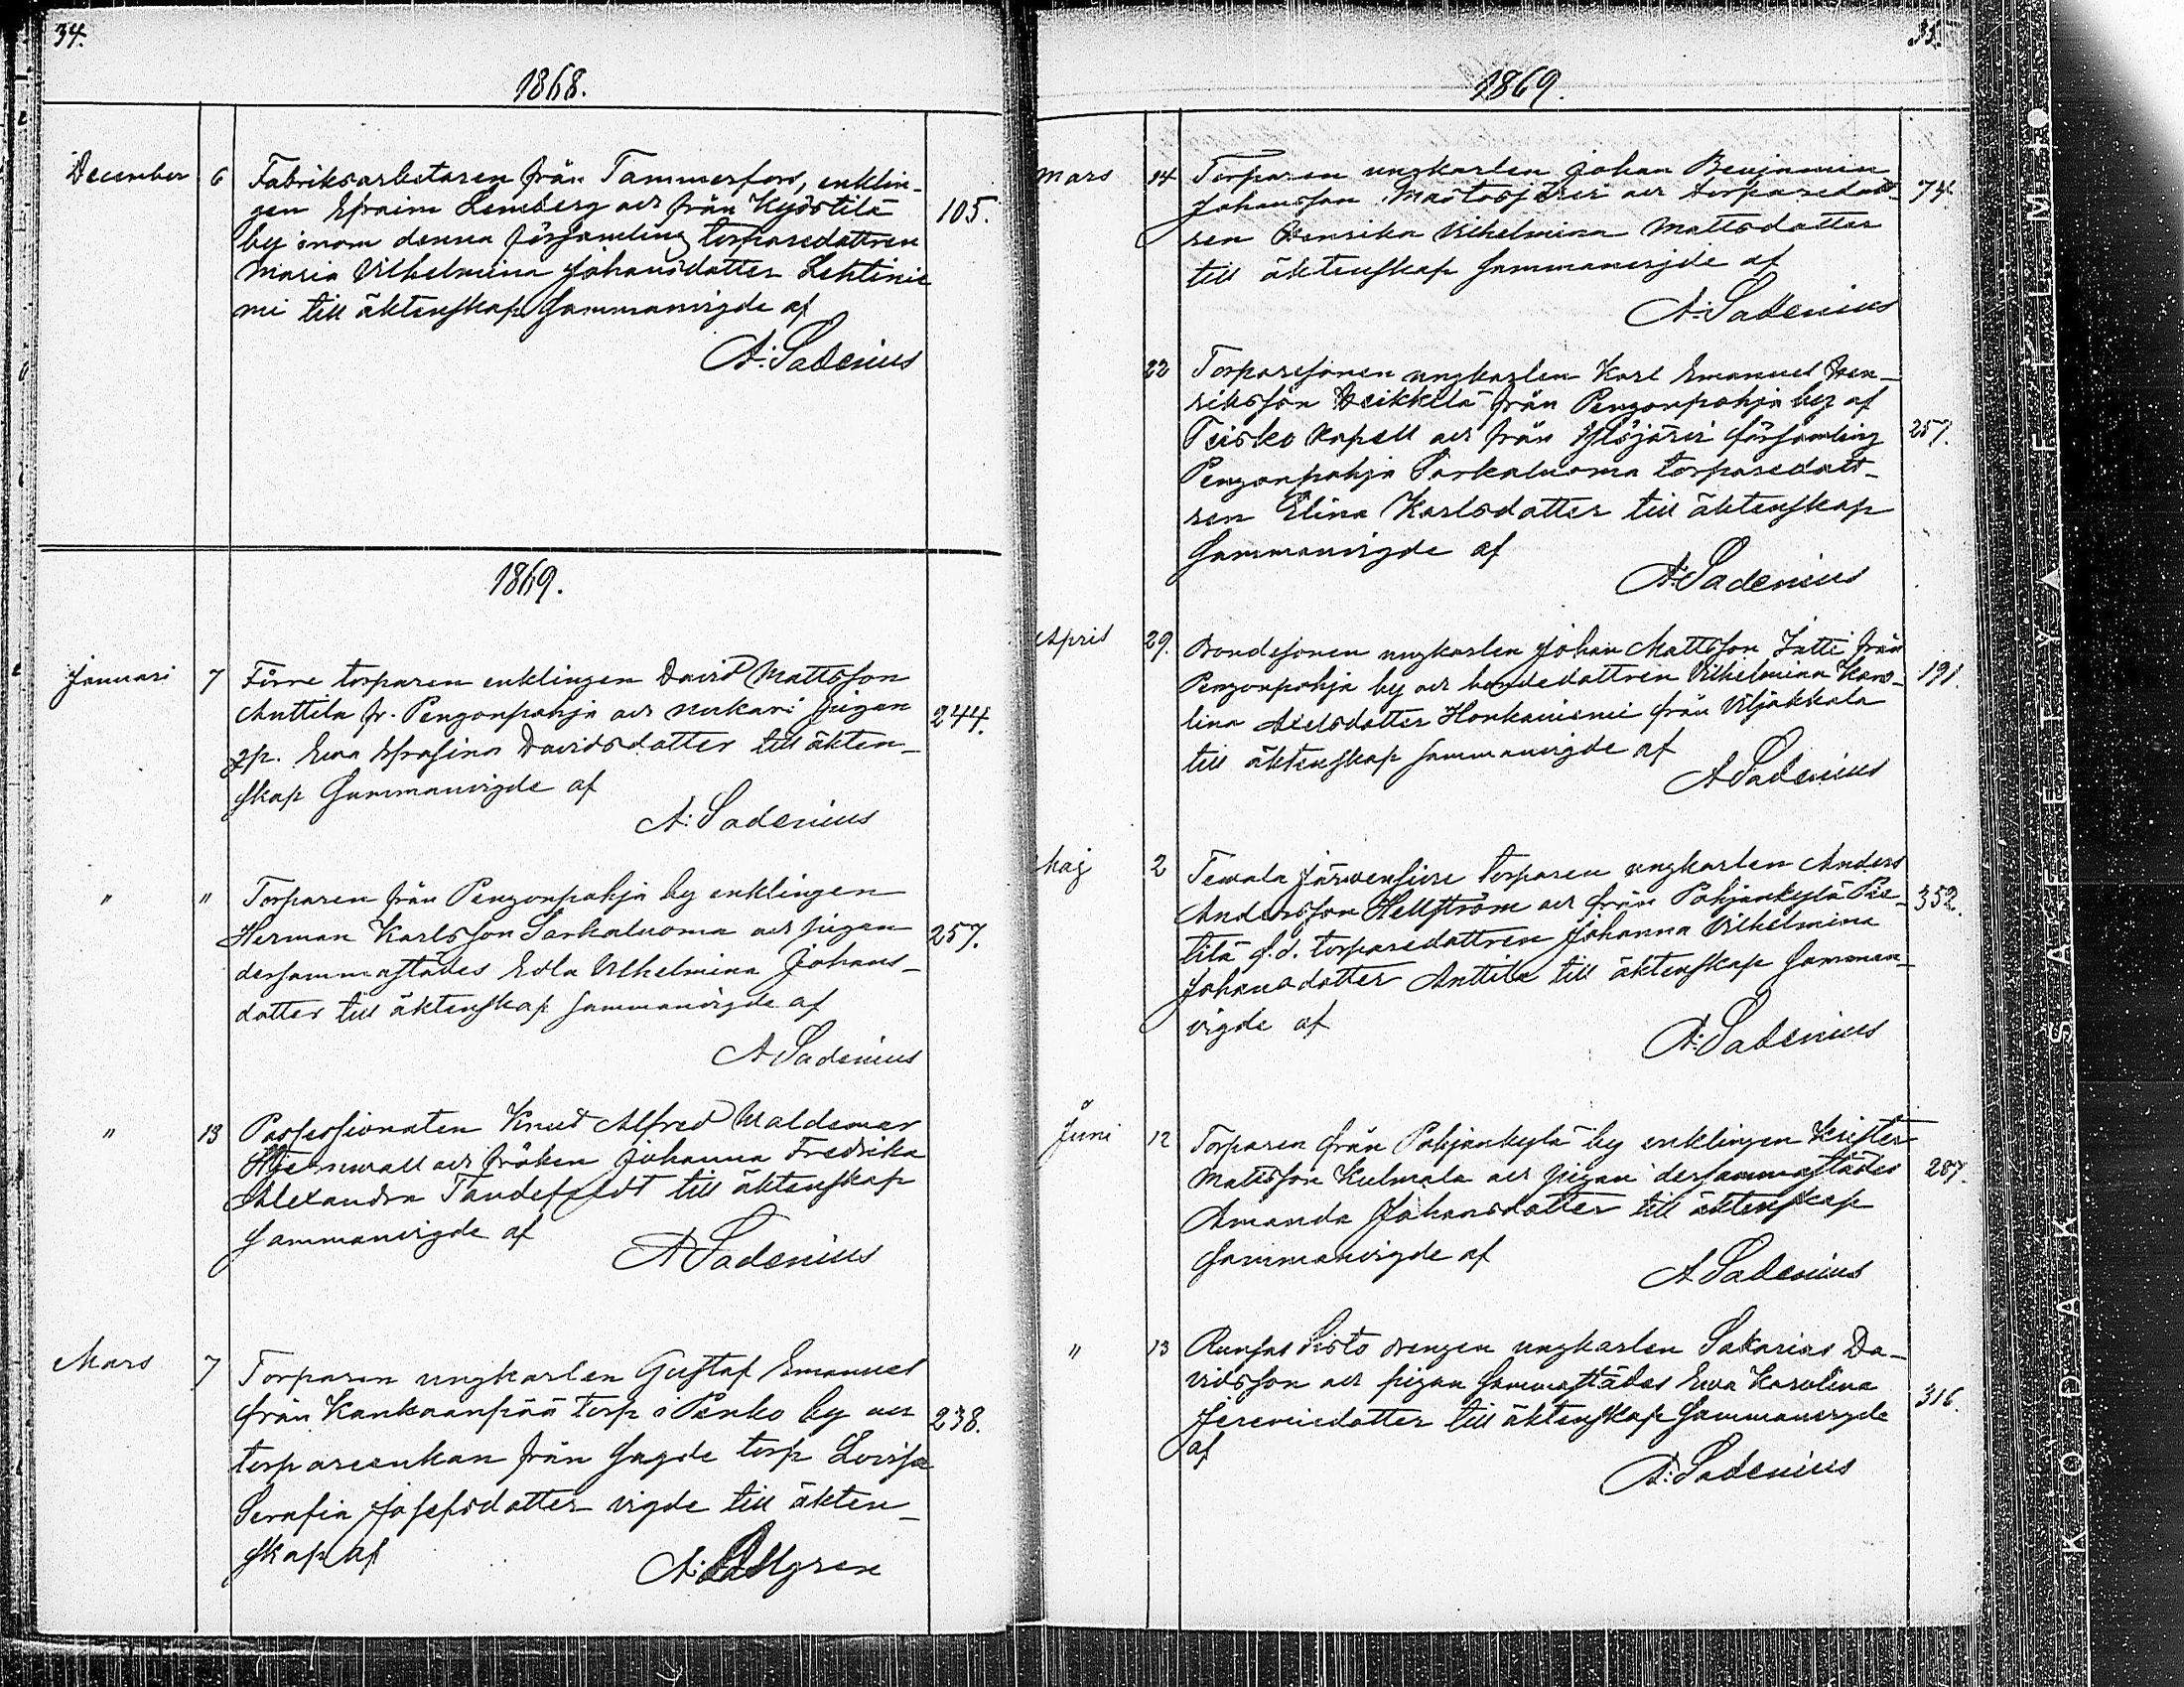 34.
1868.
December 6 Fabriksarbetaren från Tammerfors, enklin-
gen Efraim Lemberg och från Kyöstilä
by inom denna församling torparedottren 105.
Maria Vilhelmina Johansdotter Lehtinie
mi till äktenskap sammanvigde af
A: Sadenius
1869.
Januari 7 Förre torparen enklingen David Mattsson
Anttila fr. Pengonpohja och pigan 244.
Ewa Efrosina Davidsdotter till äkten-
skap sammanvigde af
A: Sadenius
" " Torparen från Pengonpohja by enklingen
Herman Karlsson Sarkaluoma och pigan 257.
dersammastädes Edla Vilhelmina Johans-
dotter till äktenskap sammanvigde af
A Sadenius
" 13 Possessionaten Knut Alfred Waldemar
och fröken Johanna Fredrika
Alexandra Tandefeldt till äktenskap
sammanvigde af
A Sadenius
Mars 7 Torparen ungkarlen Gustaf Emanuel
från Kankaanpää torp i Penko by och 238.
torpareenkan från sagde torp Lovisa
Serafia Josefsdotter vigde till äkten-
skap af
35.
1869.
Mars 14 Torparen ungkarlen Johan Benjamin
Johansson och torparedott- 74.
ren Henrika Vilhelmina Mattsdotter
till äktenskap sammanvigde af
A: Sadenius
22 Torparesonen ungkarlen Karl Emanuel Hen-
riksson Heikkilä från Pengonpohja by af
Teisko kapell och från Ylöjärvi församling 257.
Pengonpohja Sarkaluoma torparedott-
ren Elina Karlsdotter till äktenskap
sammanvigde af
A. Sadenius
April 29. Bondesonen ungkarlen Johan Mattsson Jutti från
Pengonpohja by och bondedottren Vilhelmina Karo- 191.
lina Axelsdotter Honkaniemi från Viljakkala
till äktenskap sammanvigde af
A Sadenius
Maj 2 Tewala Järwensiwu torparen ungkarlen Anders
Andersson Hellström och från Pohjankylä Pie- 352.
tilä f.d. torparedottren Johanna Vilhelmina
Johansdotter Anttila till äktenskap samman-
vigde af
A: Sadenius
Juni 12 Torparen från Pohjankylä by enklingen Krister
Mattsson Kulmala och pigan dersammastädes 287.
Amanda Johansdotter till äktenskap
sammanvigde af
A Sadenius
" 13 Sisto drengen ungkarlen Sakarias Da-
vidsson och pigan sammastädes Ewa Karolina 316.
Jeremiedotter till äktenskap sammanvigde
af
A: Sadenius
KODAK SAFETY FILM